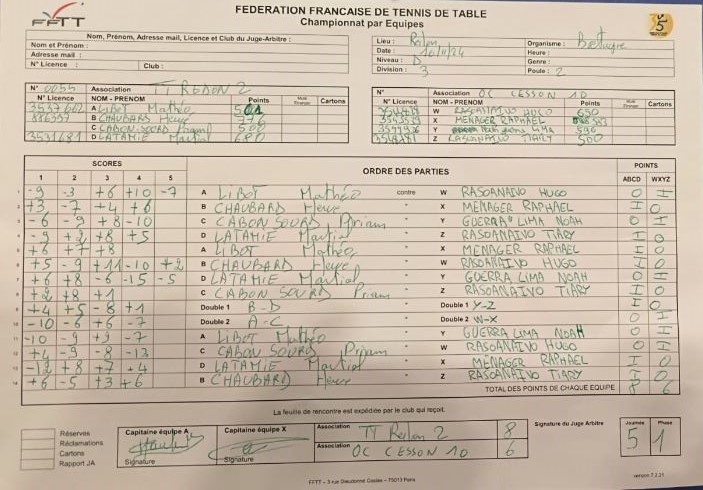 FFTT
FEDERATION FRANCAISE DE TENNIS DE TABLE
Championnat par Equipes
Nom, Prénom, Adresse mail, Licence et Club du Juge-Arbitre :
Nom et Prénom :
Adresse mail :
N° Licence : Club :
Lieu : Redon Organisme : Bretagne
Date : 10/11/24 Heure :
Niveau : D Genre :
Division : 3 Poule : 2
N° 0055 Association TT REDON 2
N° Licence NOM - PRENOM Points Cartons
A LIBOT Mathéo
B CHAUBARD Herve 776
C CABON-SOURD Priam 500
3531681 D LATAMIE Martial 680
N° Association OC CESSON 10
N° Licence NOM - PRENOM Points Cartons
W RASOANAIVO HUGO 650
X MENAGER RAPHAEL
Y LIMA 596
Z RASOANAIVO TIARY 500
SCORES ORDRE DES PARTIES POINTS
1 2 3 4 5 ABCD WXYZ
1 -9 -3 +6 +10 -7 A LIBOT Mathéo contre W RASOANAIVO HUGO O I
2 +3 -7 +4 +6 B CHAUBARD Herve " X MENAGER RAPHAEL I O
3 -6 -9 +8 -10 C CABON SOURD Priam " Y GUERRA LIMA NOAH O I
4 -9 +2 +8 +5 D LATAMIE Martial " Z RASOANAIVO TIARY I O
5 +6 +7 +8 A LIBOT Mathéo " X MENAGER RAPHAEL I O
6 +5 -9 +11 -10 +2 B CHAUBARD Herve " W RASOANAIVO HUGO I O
7 +6 +8 -6 -15 -5 D LATAMIE Martial " Y GUERRA LIMA NOAH O I
8 +2 +8 +1 C CABON SOURD Priam " Z RASOANAIVO TIARY I O
9 +4 +5 -8 +1 Double 1 B-D " Double 1 Y-Z I O
10 -10 -6 +6 -7 Double 2 A-C " Double 2 W-X O I
11 -10 -9 +9 -7 A LIBOT Mathéo " Y GUERRA LIMA NOAH O I
12 +4 -9 -8 -13 C CABON SOURD Priam " W RASOANAIVO HUGO O I
13 -12 +8 +7 +4 D LATAMIE Martial " X MENAGER RAPHAEL I O
14 +6 -5 +3 +6 B CHAUBARD Herve " Z RASOANAIVO TIARY I O
TOTAL DES POINTS DE CHAQUE EQUIPE 8 6
La feuille de rencontre est expédiée par le club qui reçoit.
Réserves
Réclamations
Cartons
Rapport JA
Capitaine équipe A
Signature
Capitaine équipe X
Signature
Association TT Redon 2 8
Association OC CESSON 10 6
Signature du Juge Arbitre
Journée 5
Phase 1
FFTT - 3 rue Dieudonné Costes - 75013 Paris
version 7.2.21